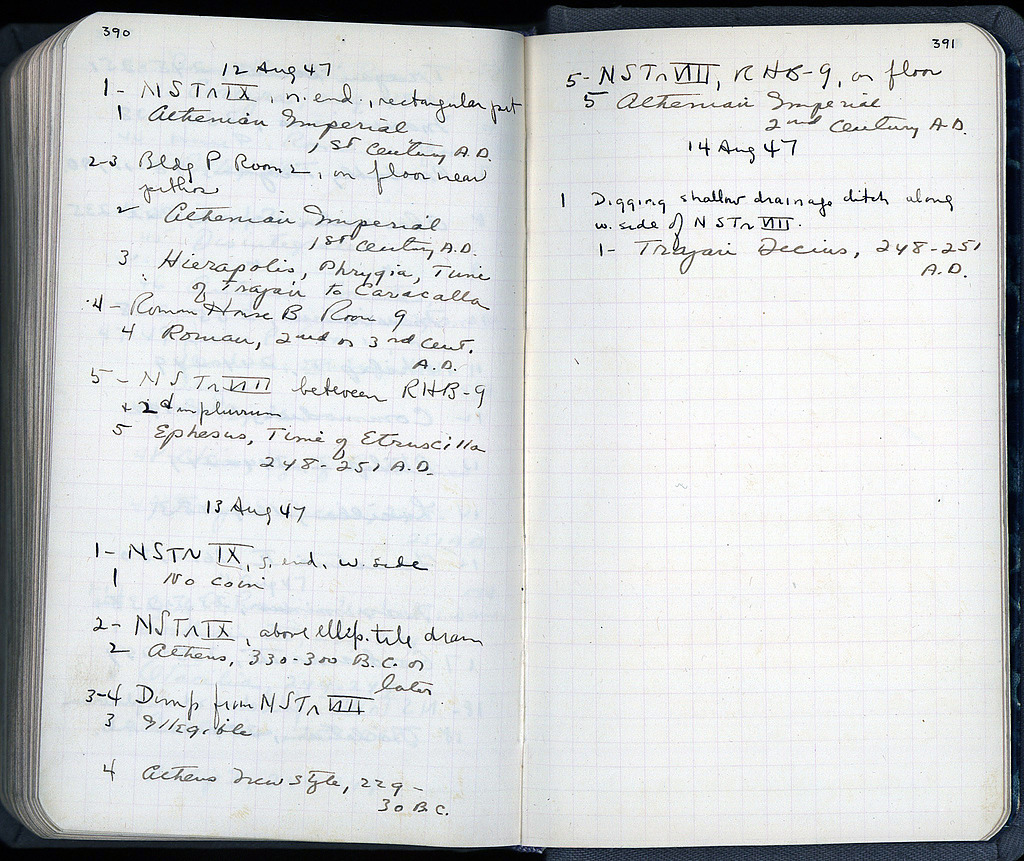 390
12 Aug 47
1- NSTr IX, n. end, rectangular pit
1 Athenian Imperial
1st Century A.D.
2-3 Bldg P Room 2, on floor near
pithos
2 Athenian Imperial
1st Century A.D.
3 Hierapolis, Phrygia, Time
of Trajan to Caracalla
4- Roman House B Room 9
4 Roman, 2nd or 3rd Cent.
A.D.
5- NSTr VIII between RHB-9
+ 2d impluvium
5 Ephesus, Time of Etruscilla
248-251 A.D.
13 Aug 47
1- NSTr IX, s. end, w. side
1 No coin
2- NSTr IX, above ellip. tile drain
2 Athens, 330-300 B.C. or
later
3-4 Dump from NSTr VIII
3 Illegible
4 Athens New Style, 229-
30 B.C.
391
5- NSTr VIII, RHB-9, on floor
5 Athenian Imperial
2nd Century A.D.
14 Aug 47
1 Digging shallow drainage ditch along
w. side of NSTr VIII.
1- Trajan Decius, 248-251
A.D.